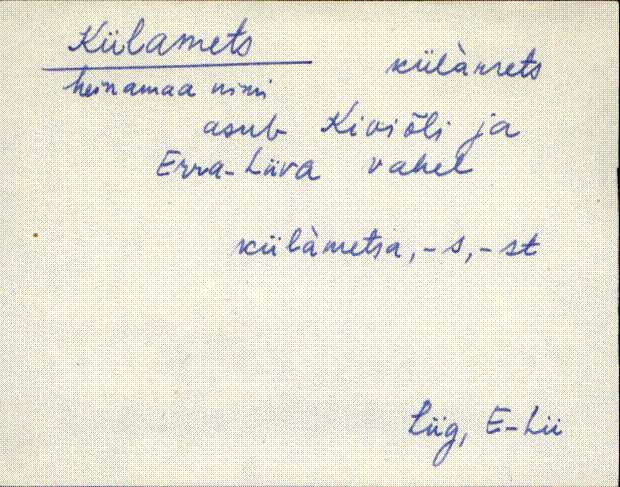 Külamets
külàmets
heinamaa nimi
asub Kiviõli ja
Erra-Liiva vahel
külàmetsa, -s, -st
Lüg, E-Lii